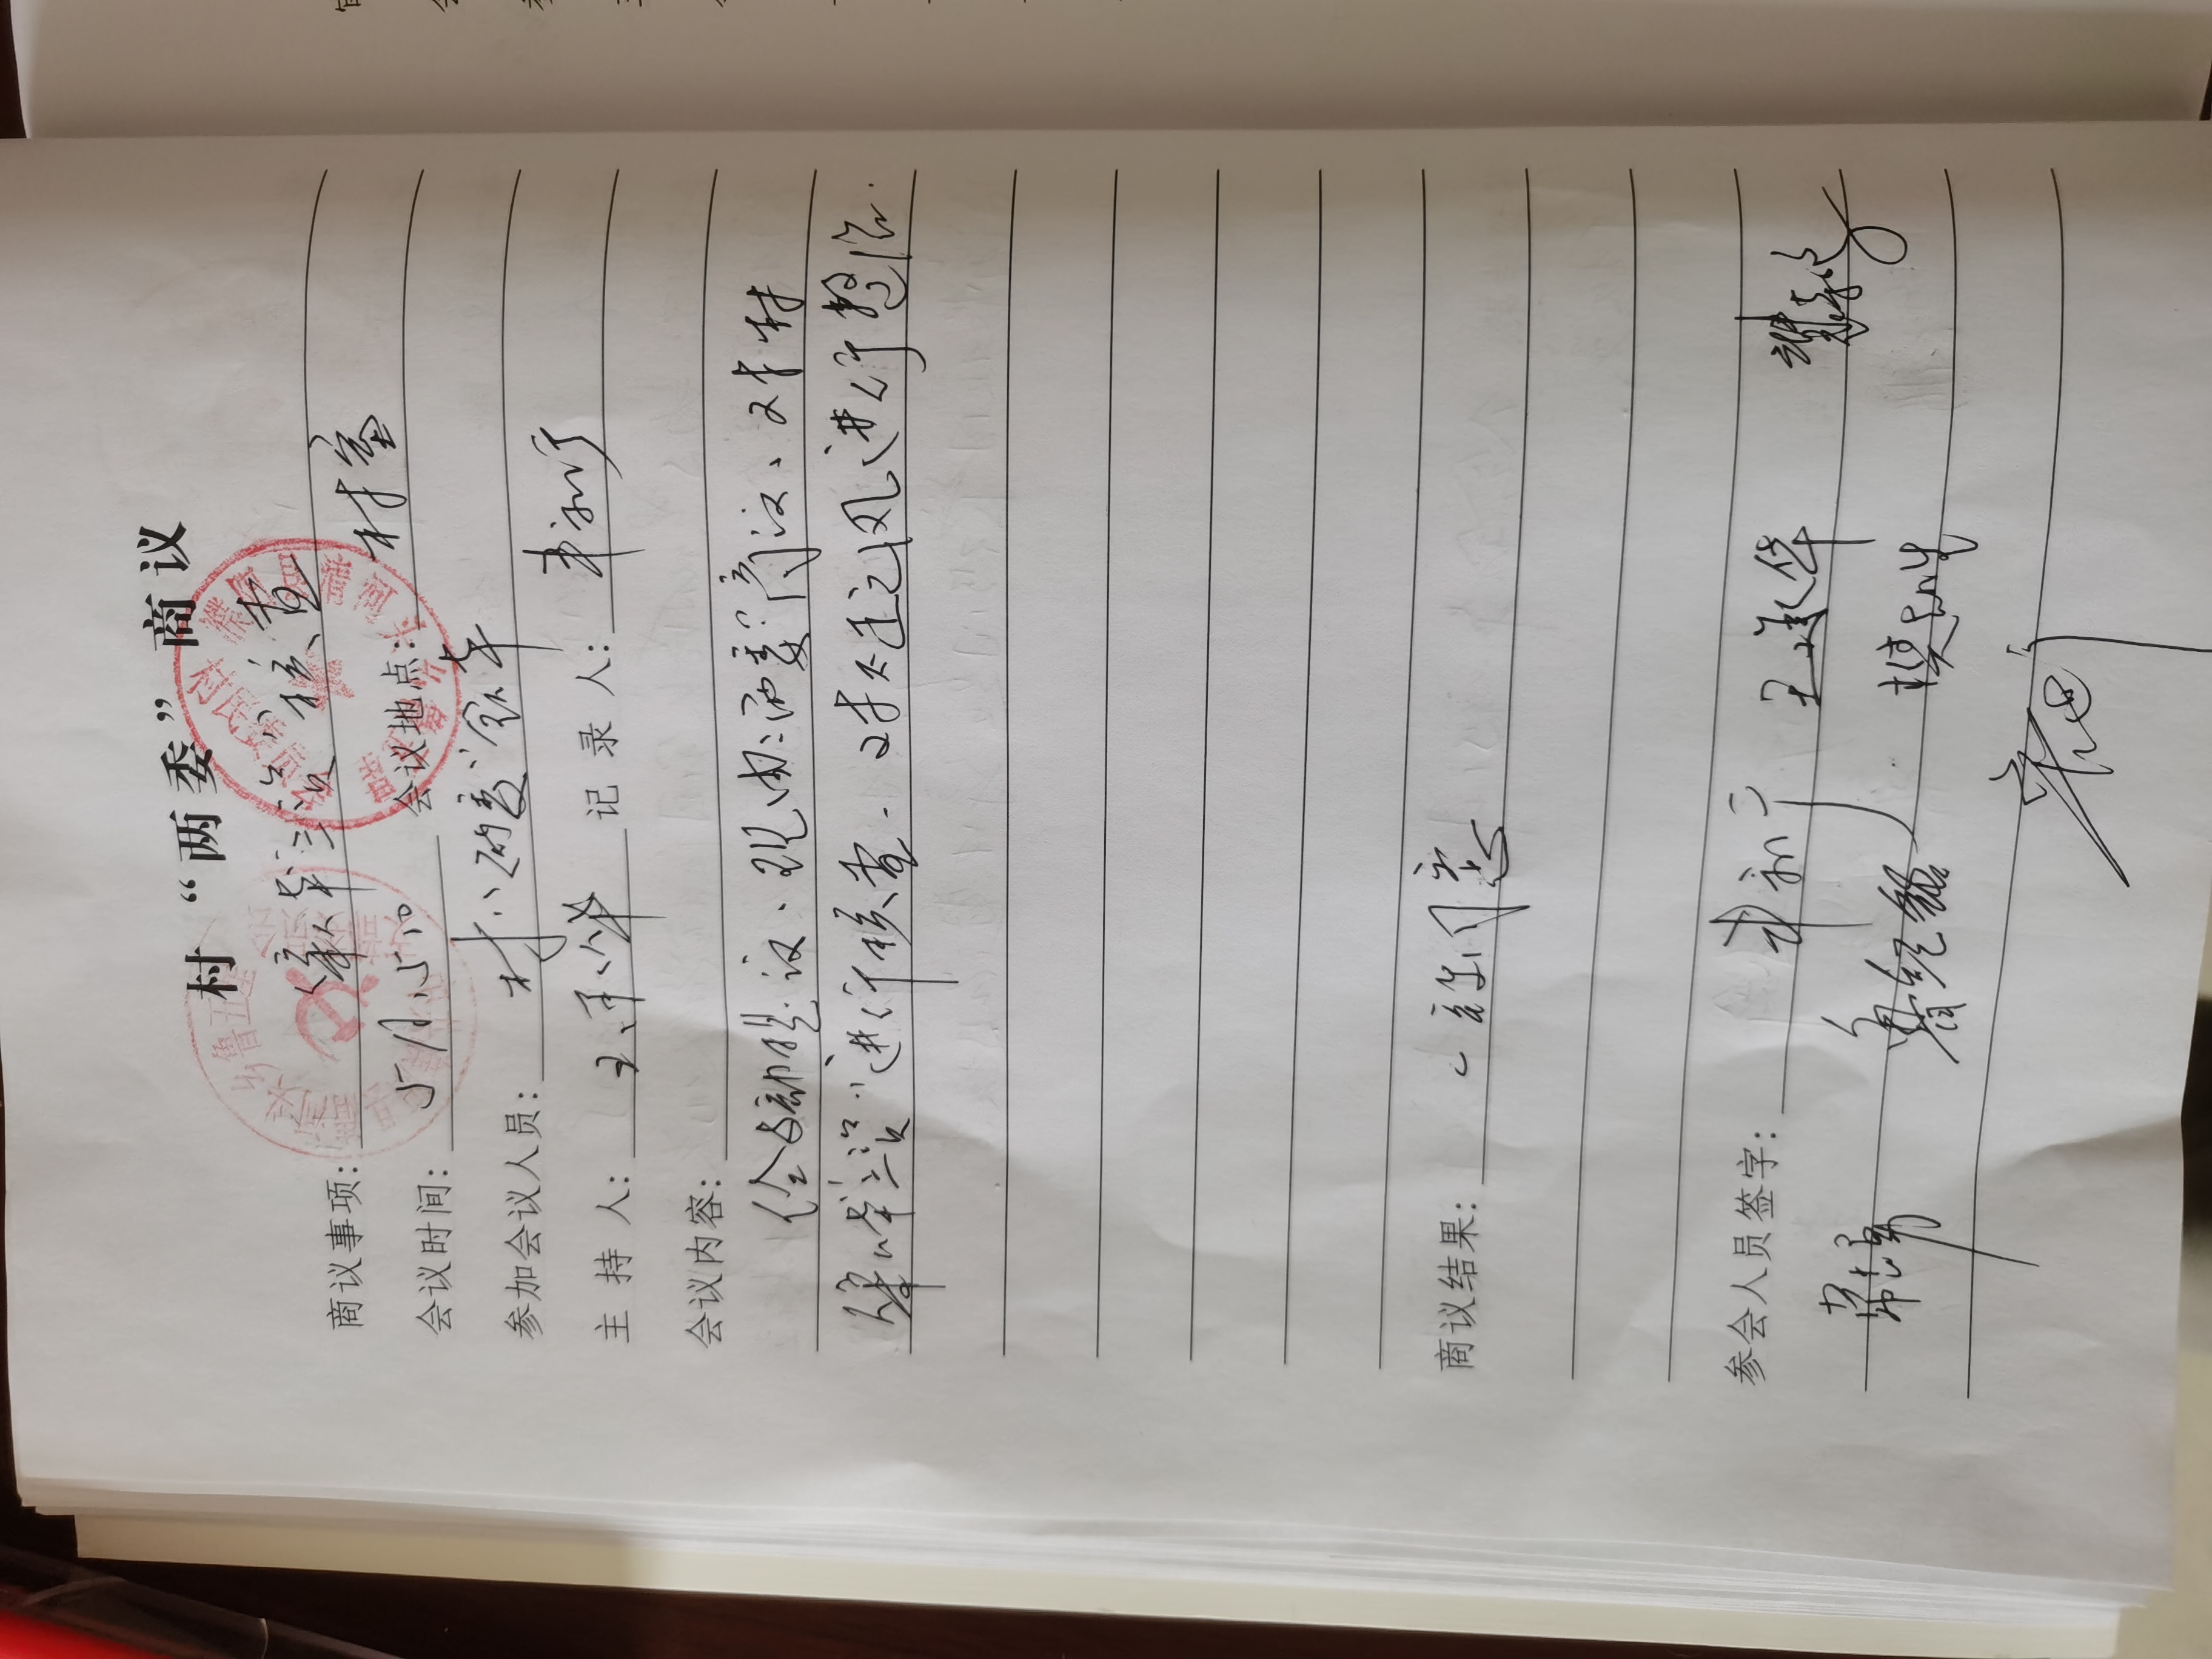 村“两委”商议
商议事项：集体“三资”核查
会议时间：5月15日 会议地点：村室
参加会议人员：村“两委”全体
主持人：王承华 记录人：
会议内容：
经支部提议、现由“两委”商议、对村
集体“三资”进行核查. 对不正之风进行整治.
商议结果：一致同意
参会人员签字： 王承华
鲁纪铭 樊志生